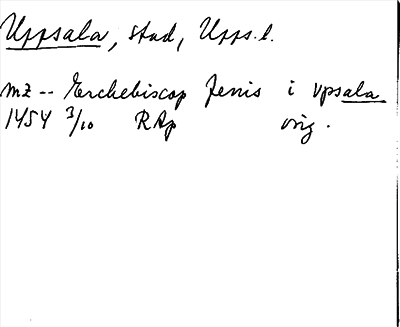 Uppsala, stad, Upps.l.
mz -- Erchebiscop Jenis i vpsala
1454 3/10 RAp orig.